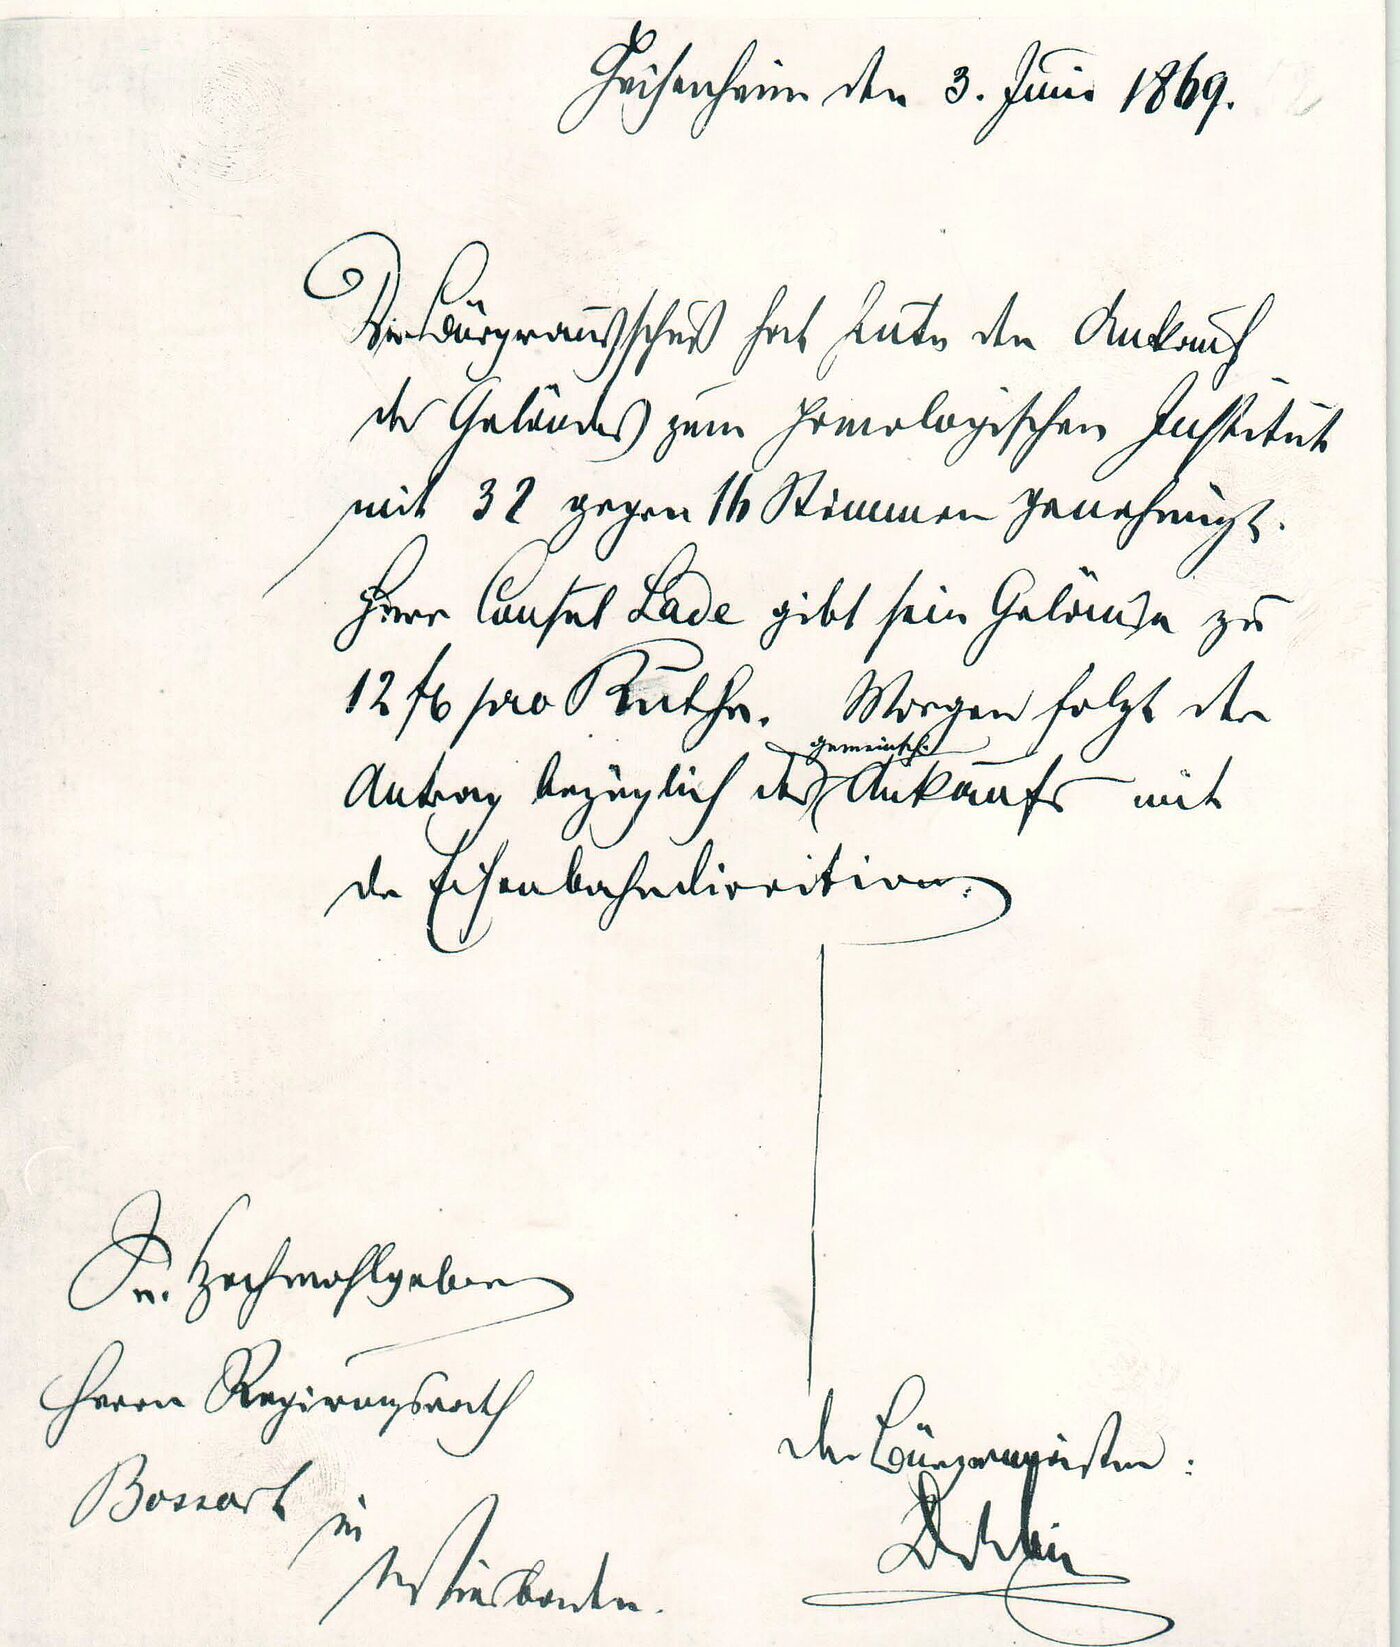 Geisenheim den 3. Juni 1869.
Der Bürgerausschuß hat heute den Ankauf
des Geländes zum pomologischen Institut
mit 32 gegen 16 Stimmen genehmigt.
Herr Consul Lade gibt sein Gelände zu
12 fl pro Ruthe. Morgen folgt der
Antrag bezüglich des gemeinsch. Ankaufs mit
der Eisenbahndirection.
Sr. Hochwohlgeboren
Herrn Regierungsrath
Bossart in
Wiesbaden.
der Bürgermeister: